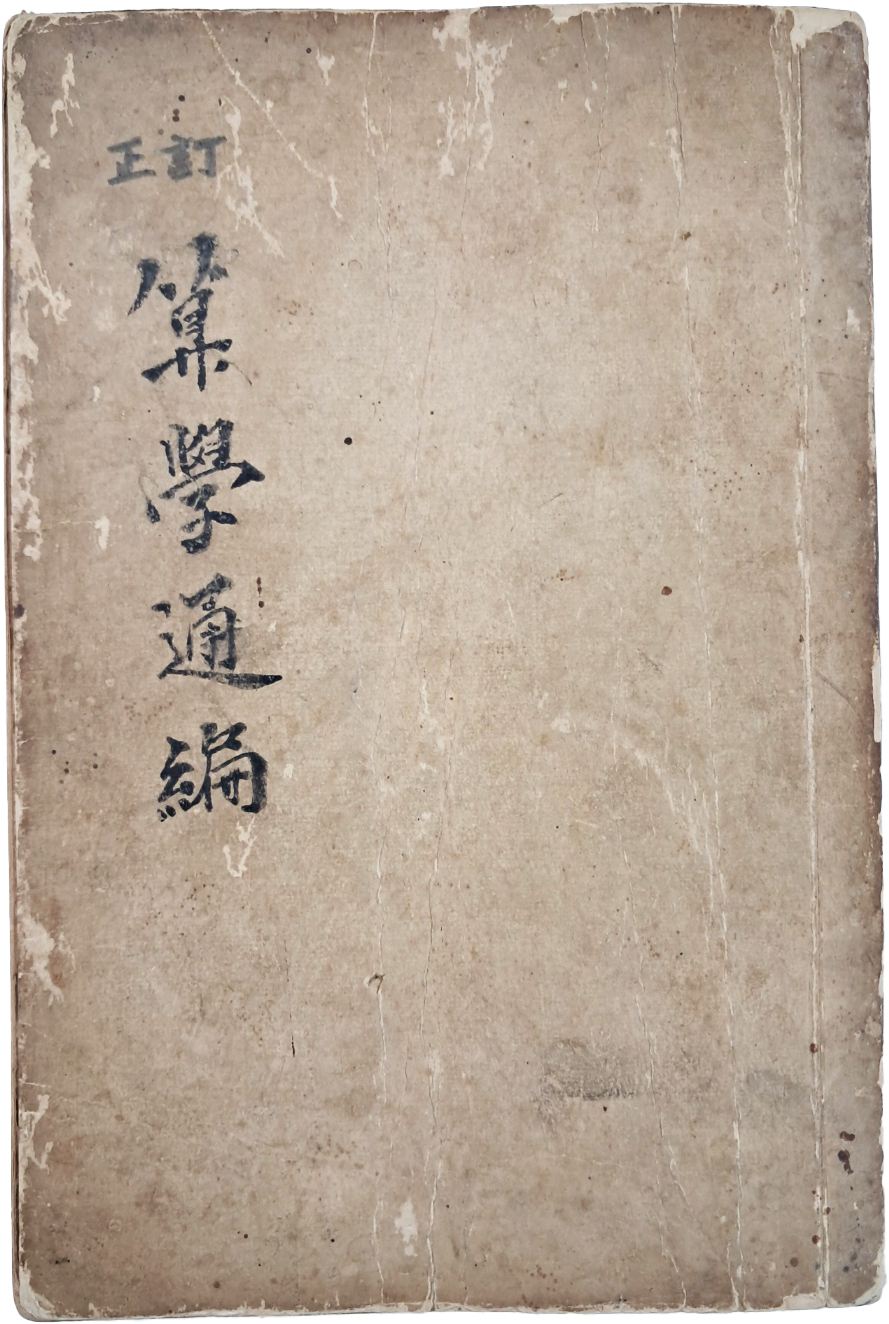 訂正
算學通編